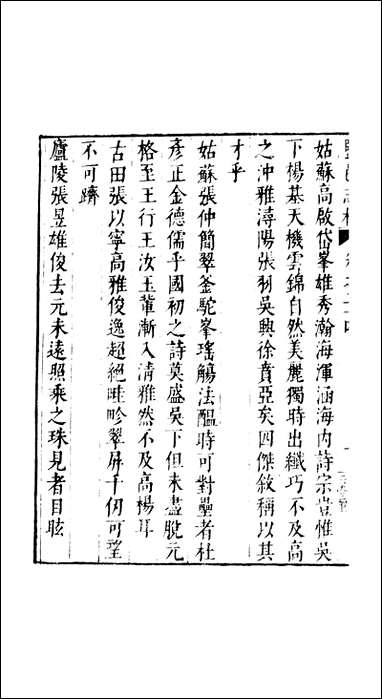 姑蘇高啟岱峯雄秀瀚海渾涵海內詩宗豈惟吳
下楊基天機雲錦自然美麗獨時出纖巧不及高
之沖雅潯陽張羽吳興徐賁亞矣四傑敘稱以其
才乎
姑蘇張仲簡翠釜駝峯瑤觴法醞時可對壘者杜
彥正金德儒乎國初之詩莫盛吳下但未盡脫元
格至王行王汝玉輩漸入清雅然不及高楊耳
古田張以寧高雅俊逸超絕畦畛翠屏千仞可望
不可躋
廬陵張昱雄俊去元未遠照乘之珠見者目眩